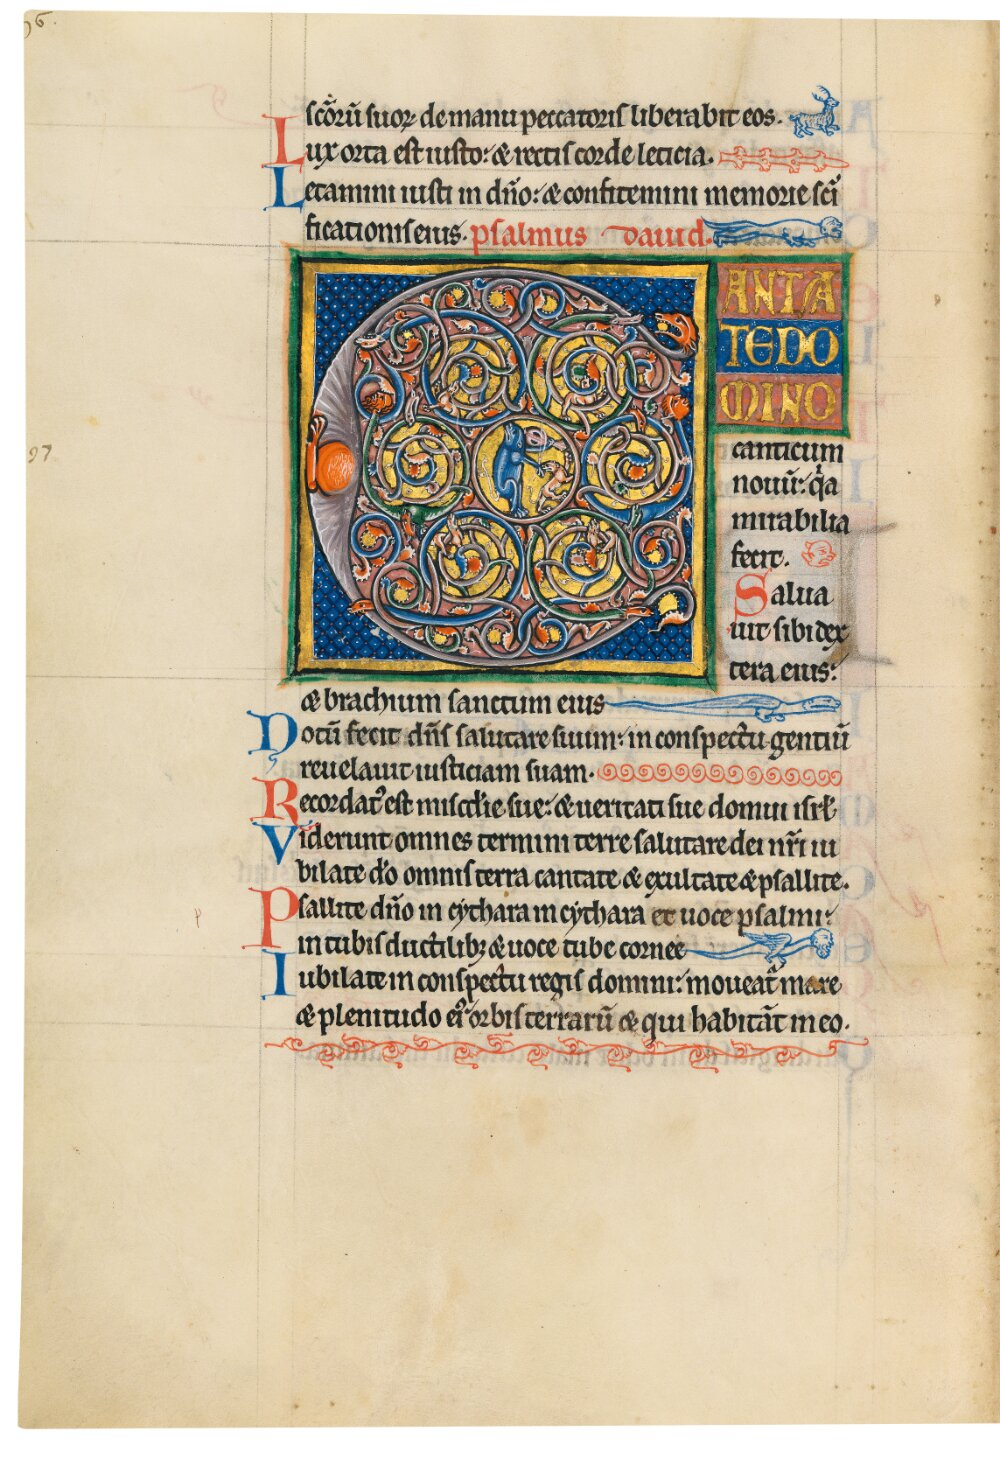 96.
sc̄oꝝ suoꝝ de manu peccatoris liberabit eos.
Lux orta est iusto: & rectis corde leticia.
Letamini iusti in dño: & confitemini memorie sc̄i
ficationis eius. psalmus dauid.
CANTA
TE DO
MINO
canticum
nouū: q̇a
mirabilia
fecit.
Salua
uit sibi dex
tera eius:
97
& brachium sanctum eius
Notū fecit dn̄s salutare suum: in conspectu gentiū
reuelauit iusticiam suam.
Recordat᷒ est misc̄die sue: & ueritati sue domui isrł.
Viderunt omnes termini terre salutare dei nr̄i iu
bilate dō omnis terra cantate & exultate & psallite.
Psallite dño in cythara in cythara et uoce psalmi:
in tubis ductilibꝫ & uoce tube cornee
Iubilate in conspectu regis domini: moueat᷒ mare
& plenitudo ei᷒ orbis terrarū & qui habitāt in eo.